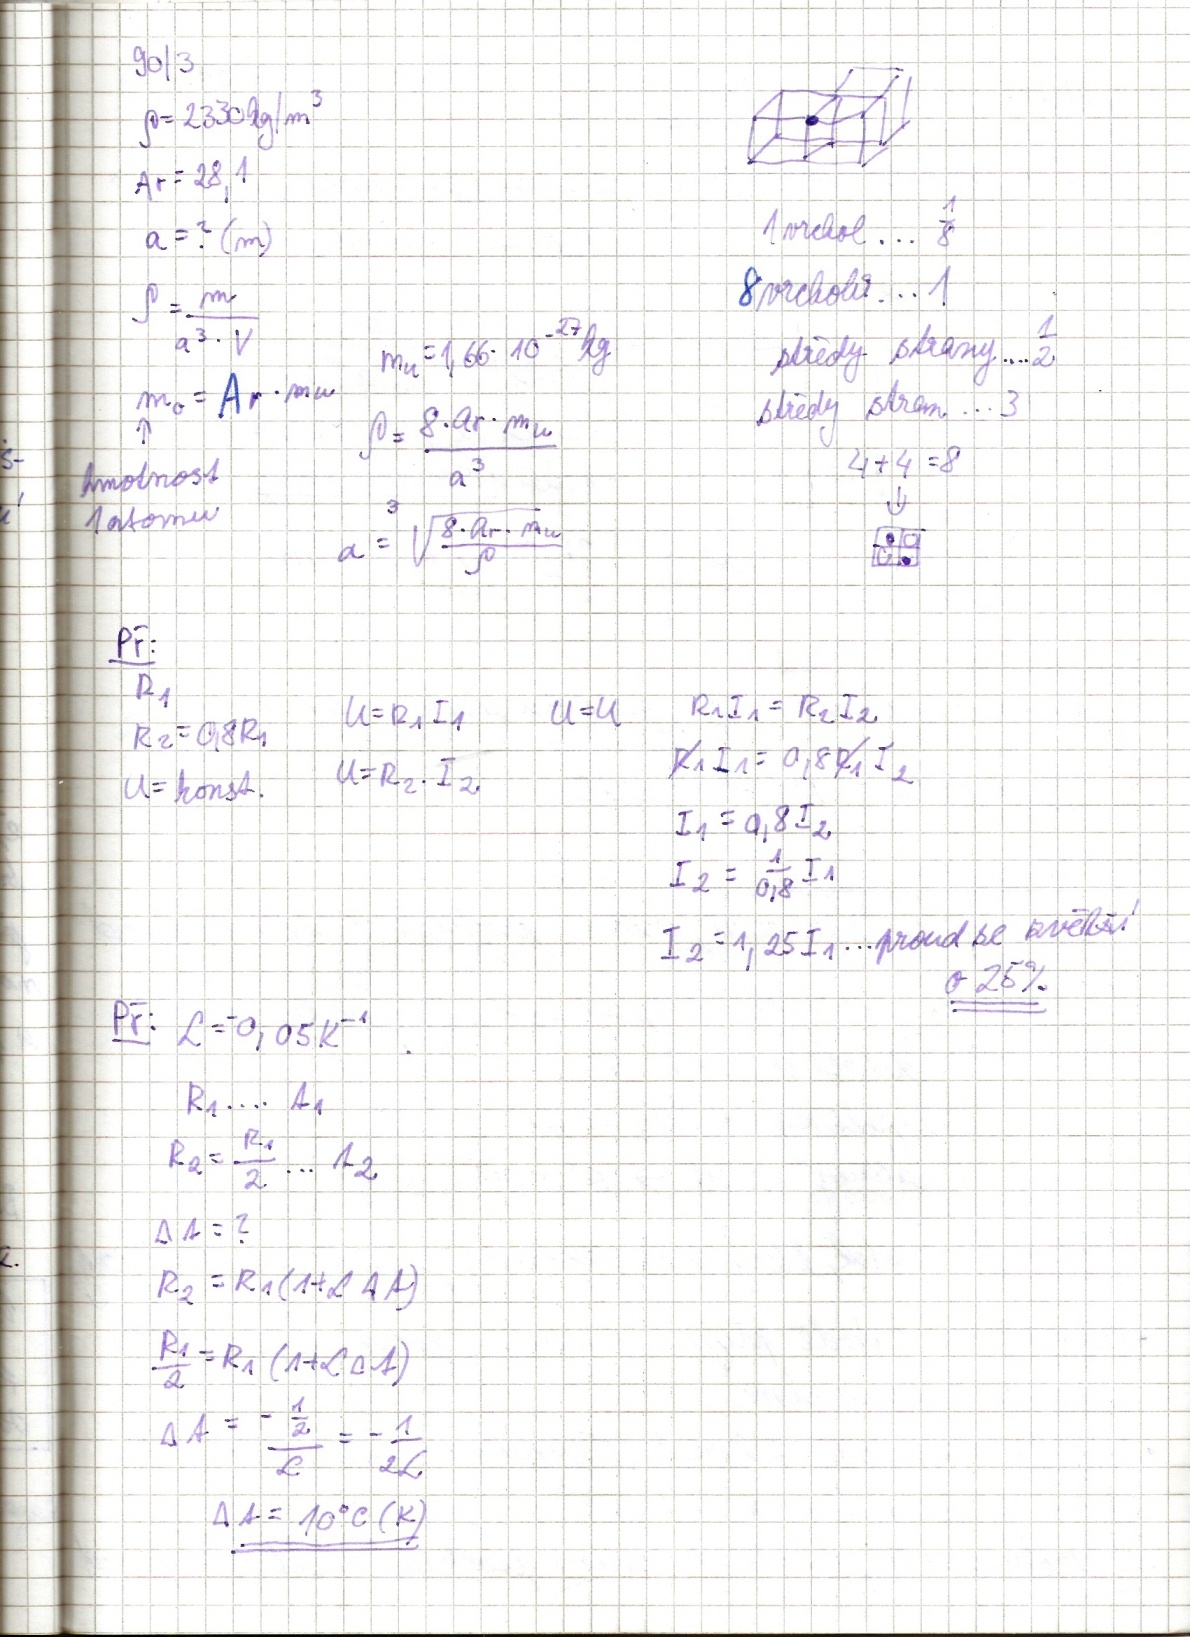 90/3
ρ = 2330 kg/m³
Ar = 28,1
a = ? (m)
ρ = m / (a³ · V)
m₀ = Ar · mu
↑
hmotnost
1 atomu
mu = 1,66 · 10⁻²⁷ kg
ρ = (8 · Ar · mu) / a³
a = ³√((8 · Ar · mu) / ρ)
1 vrchol ... 1/8
8 vrcholů ... 1
středy strany .... 1/2
středy stran ... 3
4+4 = 8
↓
Př:
R₁
R₂ = 0,8R₁
U = konst.
U = R₁I₁
U = R₂ · I₂
U = U
R₁I₁ = R₂I₂
R₁I₁ = 0,8R₁I₂
I₁ = 0,8I₂
I₂ = 1/0,8 I₁
I₂ = 1,25I₁ ... proud se zvětší
o 25%
Př: α = -0,05K⁻¹
R₁ .... t₁
R₂ = R₁/2 ... t₂
Δt = ?
R₂ = R₁(1+αΔt)
R₁/2 = R₁(1+αΔt)
Δt = - (1/2)/α = - 1/(2α)
Δt = 10°C (K)